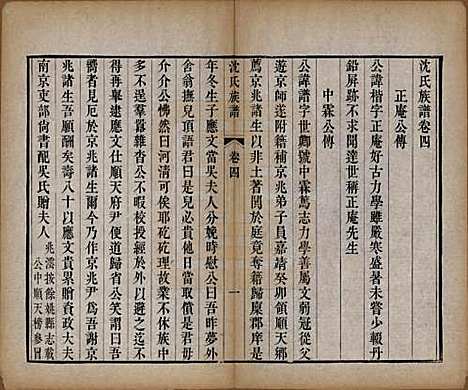 沈氏族譜卷四
正庵公傳
公諱楷字正庵好古力學雖嚴寒盛暑未嘗少輟丹
鉛屏跡不求聞達世稱正庵先生
中霖公傳
公諱譜字世卿號中霖篤志力學善屬文弱冠從父
遊京師遂附籍補京兆弟子員嘉靖癸卯領順天鄉
薦京兆諸生以非土著鬨於庭竟奪籍歸糜郡庠是
沈氏族譜
卷四
一
年冬生子應文當吳夫人分娩時慰公曰吾雖
舍翁撫兒頂語君曰是兒必貴他日當償是君毋
介介公怫然曰河清可俟耶矻矻理故業不休族中
多不逞羣囂雜沓公不暇校授經於外以避之迄不
得再舉逮應文仕順天府尹便道歸省公笑謂曰吾
嚮者見厄於京兆諸生爾今乃作京兆尹為吾謝京
兆諸生吾願酬矣壽八十以應文貴累贈資政大夫
南京吏部尚書配吳氏贈夫人
兆澐按餘姚縣志載
公中順天榜參買